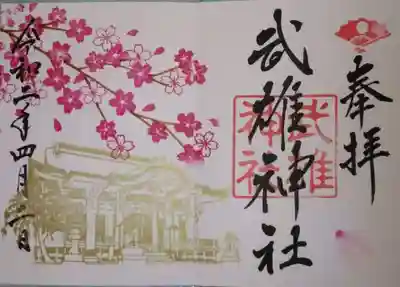 奉拝
武雄神社
武雄神社
令和二年四月二日